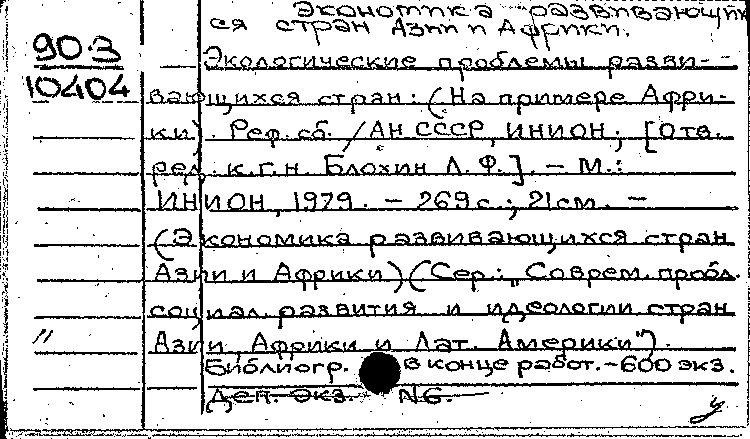 Экономика развивающих
ся стран Азии и Африки.
90-3
10404
Экологические проблемы разви-
вающихся стран: (На примере Афри-
ки). Реф. сб. / АН СССР, ИНИОН; [Отв.
ред. к.г.н. Блохин Л.Ф.]. – М.:
ИНИОН, 1979. – 269 с.; 21 см. –
(Экономика развивающихся стран
Азии и Африки) (Сер.: „Соврем. пробл.
социал. развития и идеологии стран
Азии, Африки и Лат. Америки").
Библиогр. в конце работ. – 600 экз.
Деп. экз. №6.